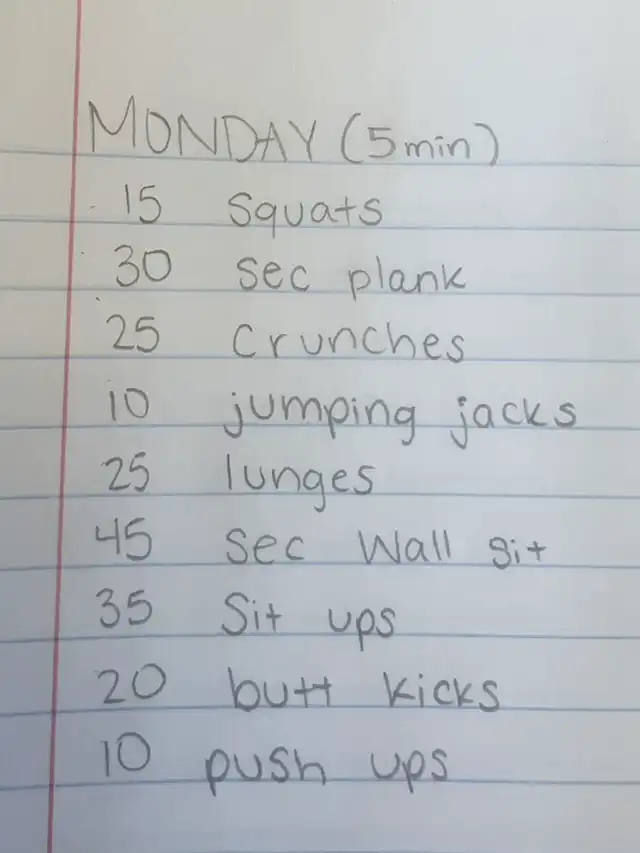 MONDAY (5 min)
15 squats
30 sec plank
25 crunches
10 jumping jacks
25 lunges
45 sec Wall sit
35 Sit ups
20 butt kicks
10 push ups